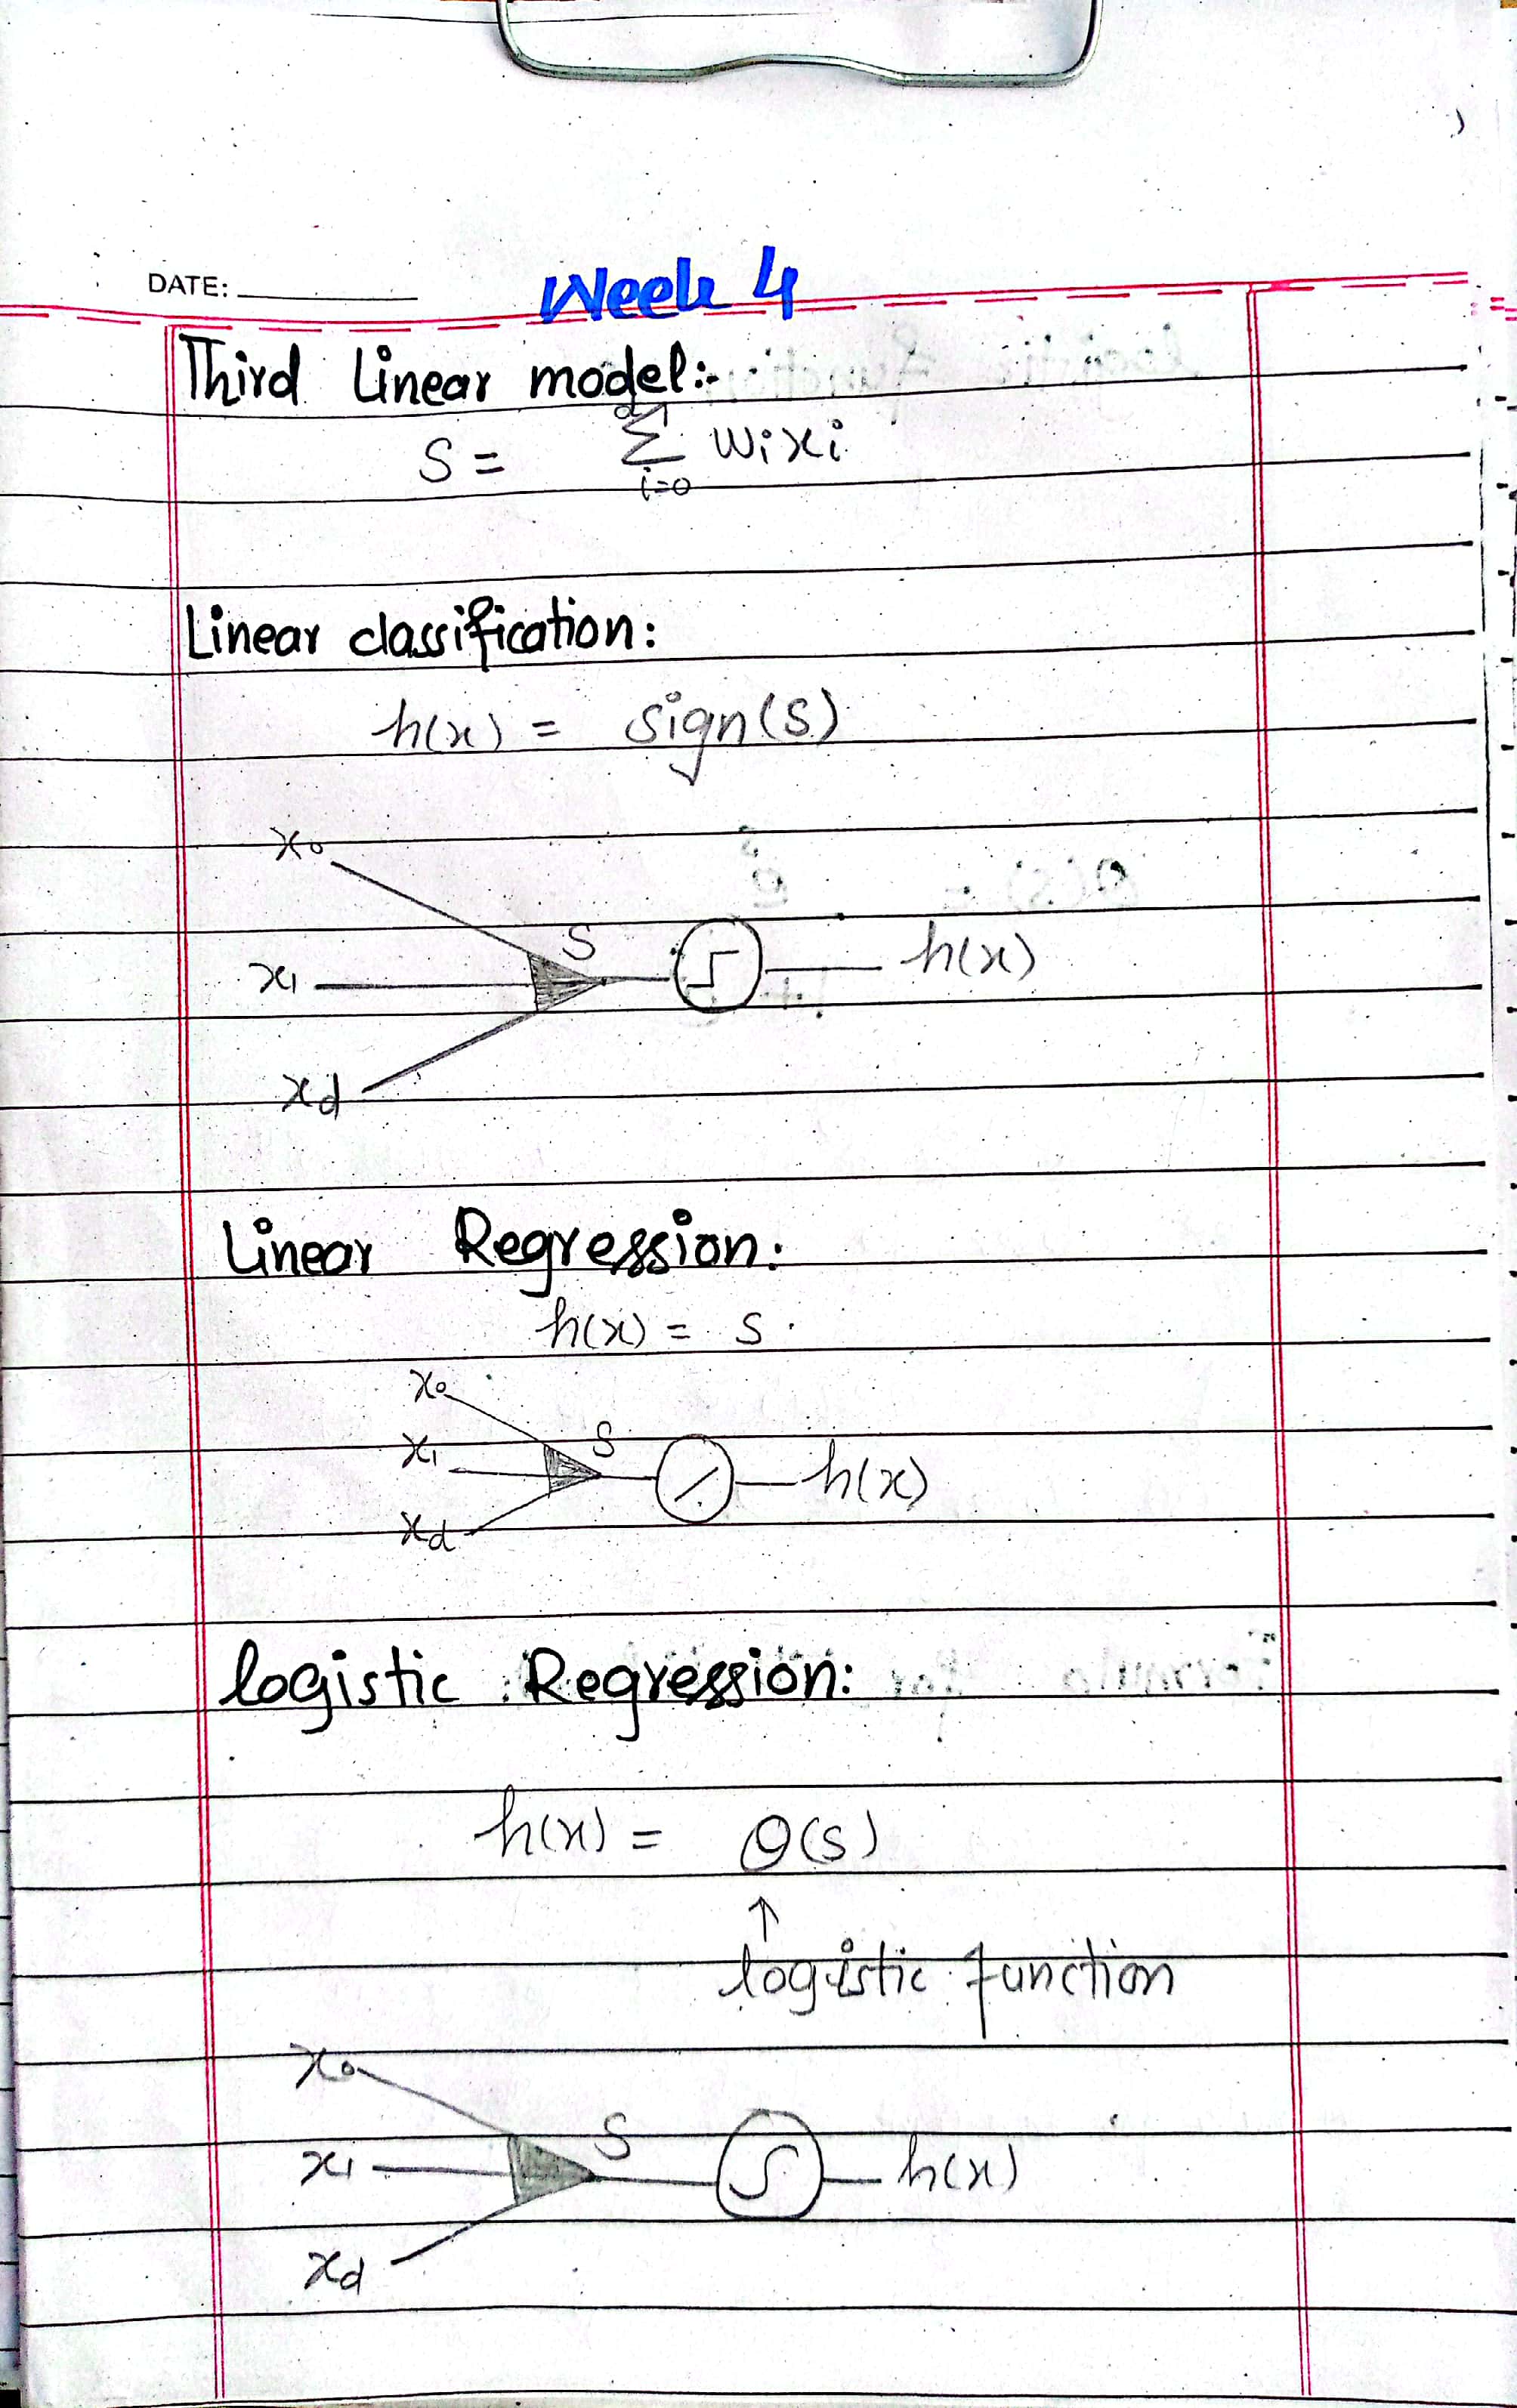 DATE:
Week 4
Third Linear model:-
S = Σ wixi
i=0
Linear classification:
h(x) = sign(s)
x0
S
x1 h(x)
xd
Linear Regression:
h(x) = s
x0
x1 S
h(x)
xd
logistic Regression:
h(x) = θ(s)
↑
logistic function
x0
S
x1 h(x)
xd